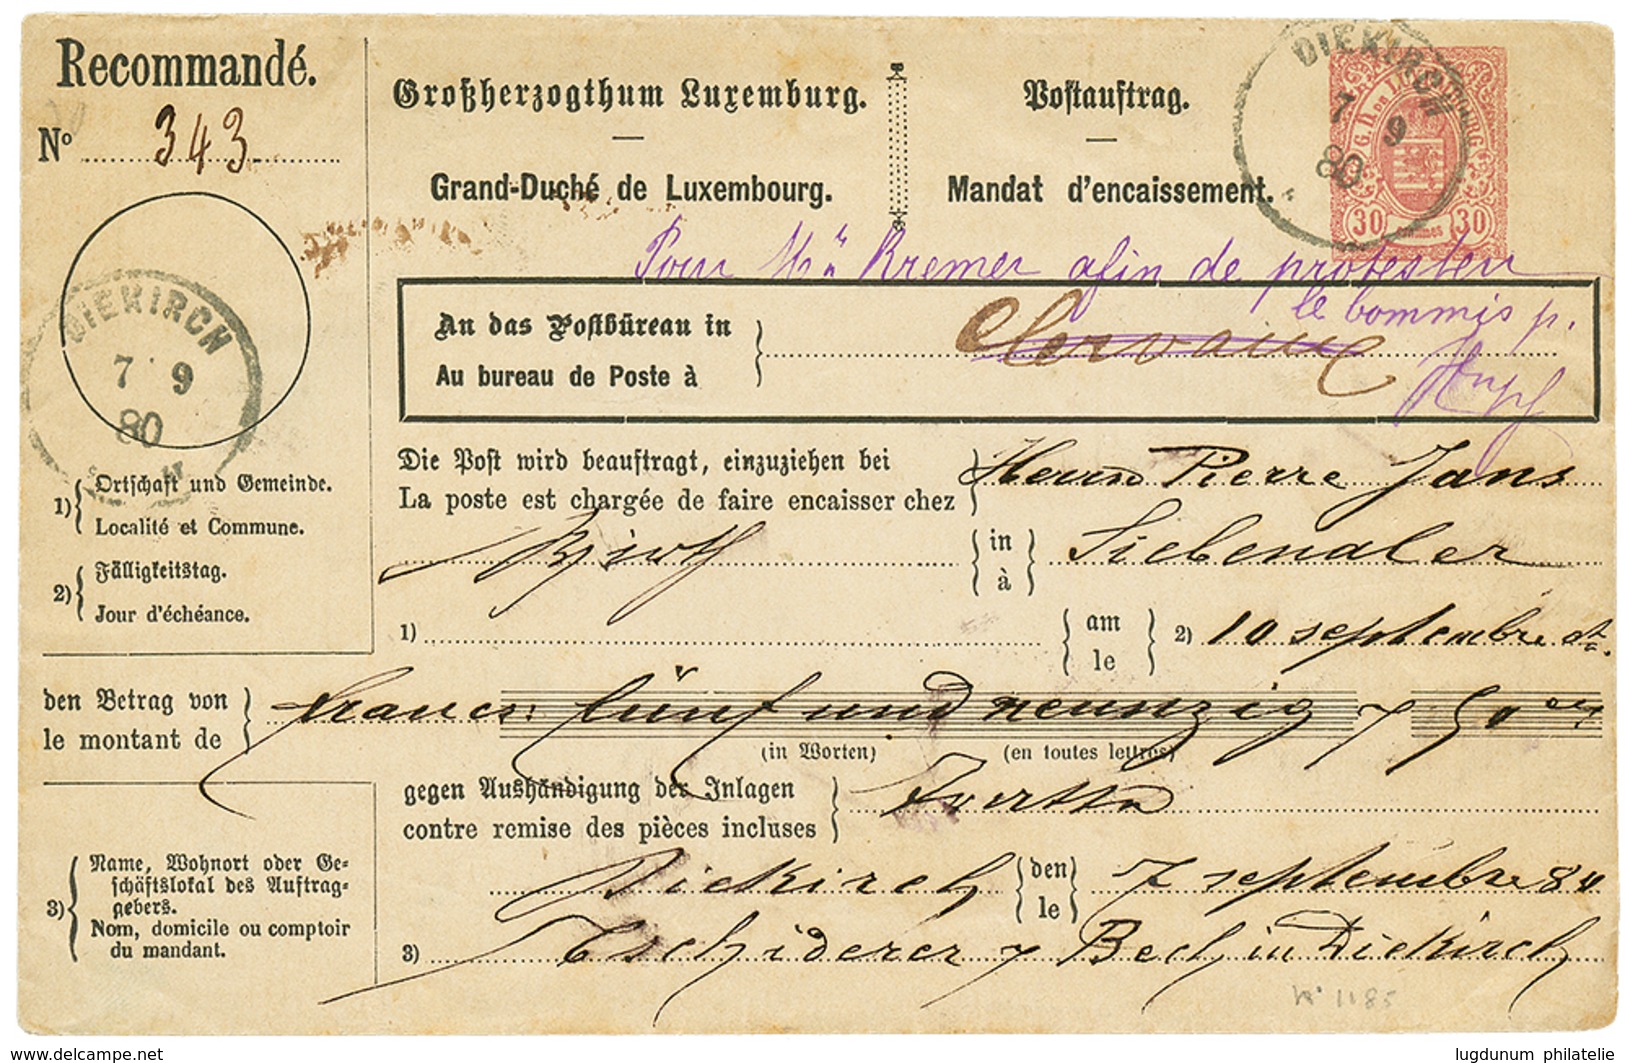 Recommandé.
Nº 343
Großherzogthum Luxemburg.
—
Grand-Duché de Luxembourg.
Postauftrag.
—
Mandat d'encaissement.
DIEKIRCH
7 9
80
G. D. DE LUXEMBOURG
30 CENTIMES 30
Pour Mr Kremer afin de protester
le commis p.
An das Postbüreau in
Au bureau de Poste à
Clervaux
DIEKIRCH
7 9
80
Die Post wird beauftragt, einzuziehen bei
La poste est chargée de faire encaisser chez
Herrn Pierre Jans
Wirth
in
à
Siebenaler
1)
Ortschaft und Gemeinde.
Localité et Commune.
2)
Fälligkeitstag.
Jour d'échéance.
1)
am
le
2) 10 septembre ct
den Betrag von
le montant de
francs: fünf und neunzig 7 50
(in Worten) (en toutes lettres)
gegen Aushändigung der Inlagen
contre remise des pièces incluses
Diekirch
den
le
7 septembre 80
3)
Name, Wohnort oder Ge-
schäftslokal des Auftrag-
gebers.
Nom, domicile ou comptoir
du mandant.
3) Tschiderer & Bech in Diekirch
Nº 1185
www.delcampe.com
lugdunum philatelie